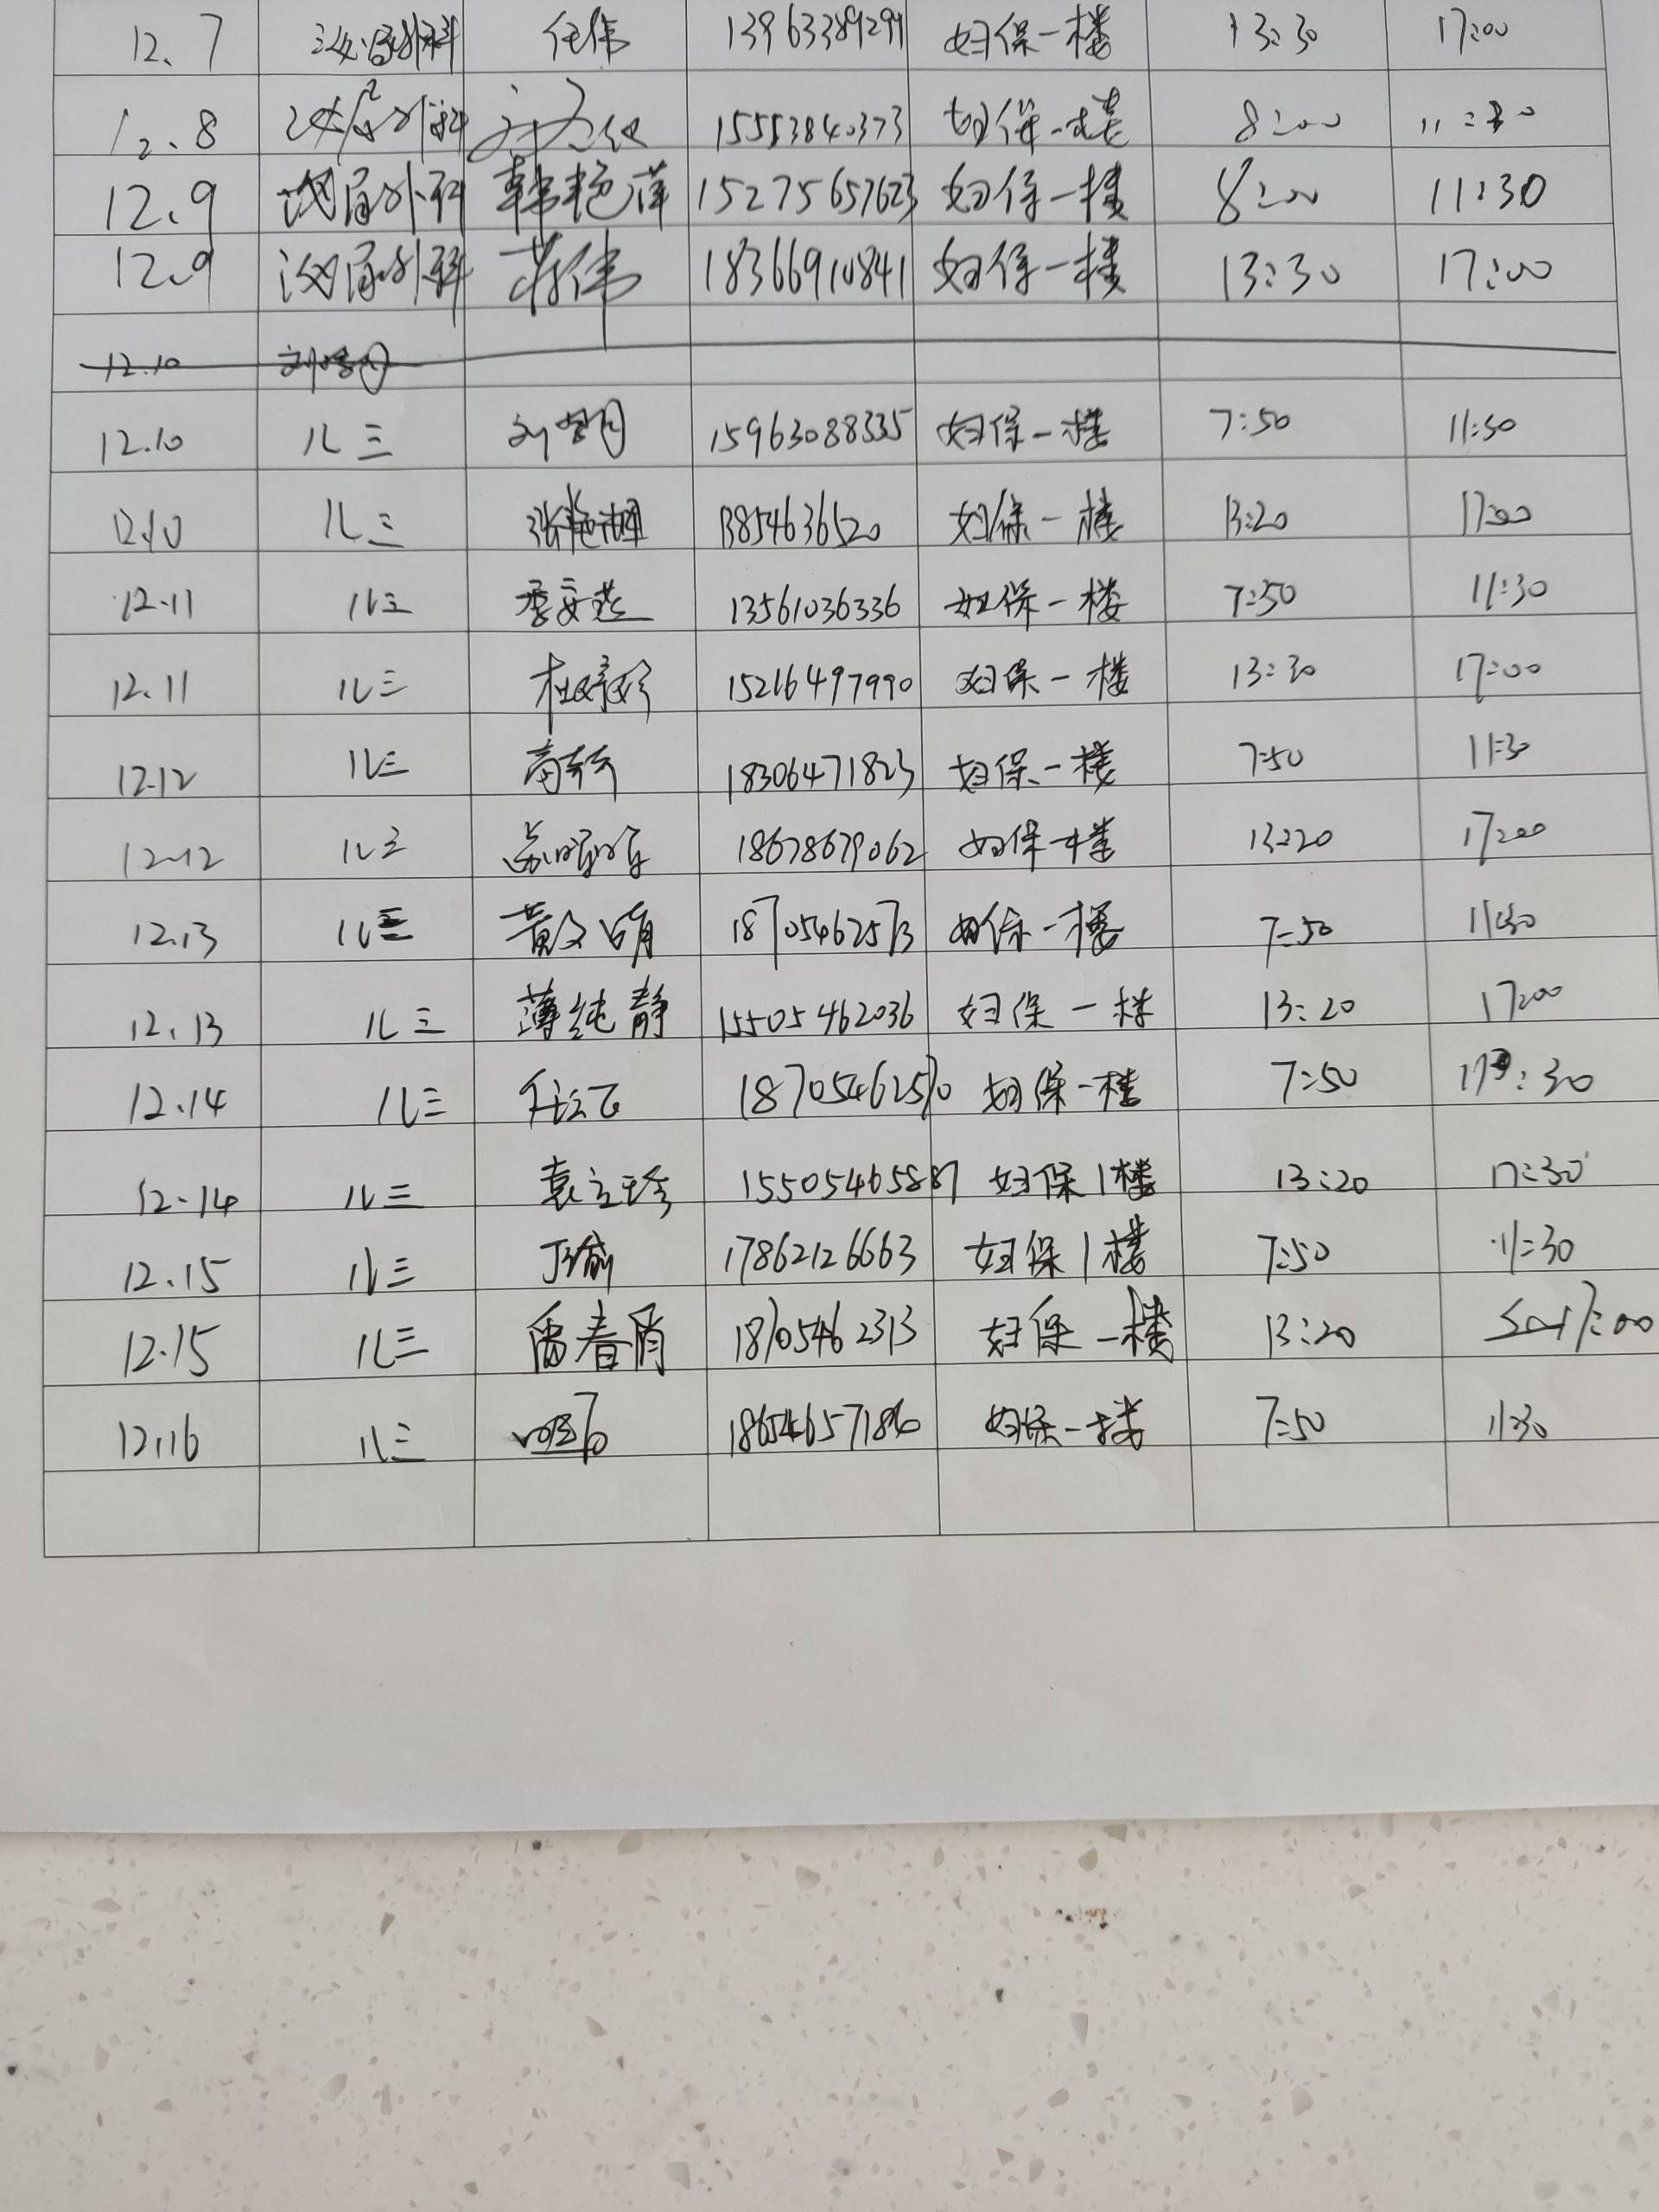 12.7 泌尿外科 任伟 13963389299 妇保一楼 13:30 17:00
12.8 泌尿外科 15553840373 妇保一楼 8:00 11:30
12.9 泌尿外科 韩艳萍 15275657623 妇保一楼 8:00 11:30
12.9 泌尿外科 蒋伟 18366910841 妇保一楼 13:30 17:00
12.10
12.10 儿三 15963088335 妇保一楼 7:50 11:30
12.10 儿三 13854636520 妇保一楼 13:20 17:00
12.11 儿三 季文燕 13561036336 妇保一楼 7:50 11:30
12.11 儿三 杜婷婷 15216497990 妇保一楼 13:30 17:00
12.12 儿三 18306471823 妇保一楼 7:50 11:30
12.12 儿三 18678679062 妇保一楼 13:20 17:00
12.13 儿三 黄文娟 18705462573 妇保一楼 7:50 11:30
12.13 儿三 薄纯静 15505462036 妇保一楼 13:20 17:00
12.14 儿三 18705462570 妇保一楼 7:50 :30
12.14 儿三 袁立珍 妇保1楼 13:20 17:30
12.15 儿三 丁瑜 17862126663 妇保1楼 7:50 11:30
12.15 儿三 18705462313 妇保一楼 13:20 17:00
12.16 儿三 妇保一楼 7:50 11:30